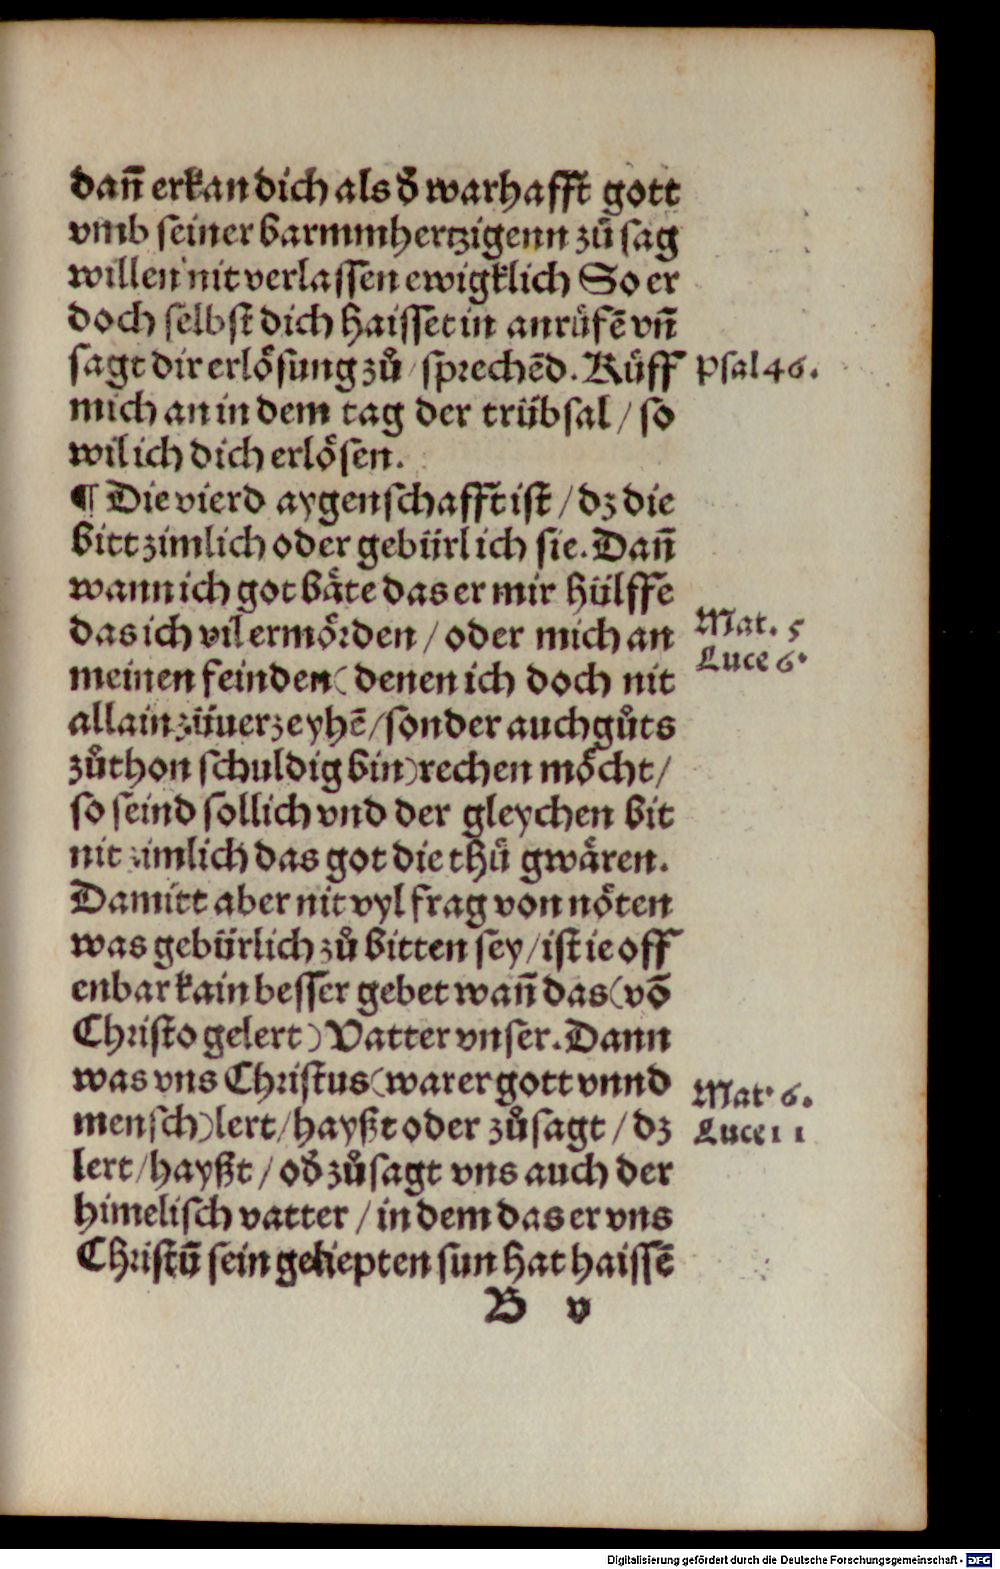 dan̄ erkan dich als d̄ warhafft gott
vmb seiner barmmhertzigenn zů sag
willen nit verlassen ewigklich So er
doch selbst dich haisset in anrůfē vn̄
sagt dir erlösung zů / sprechēd. Růff
Psal 46.
mich an in dem tag der trübsal / so
wil ich dich erlösen.
¶ Die vierd aygenschafft ist / dz die
bitt zimlich oder gebürlich sie. Dan̄
wann ich got bäte das er mir hülffe
das ich vil ermörden / oder mich an
Mat. 5
Luce 6.
meinen feinden (denen ich doch nit
allain zůuerzeyhē / sonder auch gůts
zůthon schuldig bin) rechen möcht /
so seind sollich vnd der gleychen bit
nit zimlich das got die thů gwären.
Damitt aber nit vyl frag von nöten
was gebürlich zů bitten sey / ist ie off
enbar kain besser gebet wan̄ das (vō
Christo gelert) Vatter vnser. Dann
was vns Christus (warer gott vnnd
Mat. 6.
mensch) lert / hayßt oder zůsagt / dz
Luce 11
lert / hayßt / od̄ zůsagt vns auch der
himelisch vatter / in dem das er vns
Christū sein geliepten sun hat haissē
B v
Digitalisierung gefördert durch die Deutsche Forschungsgemeinschaft - DFG